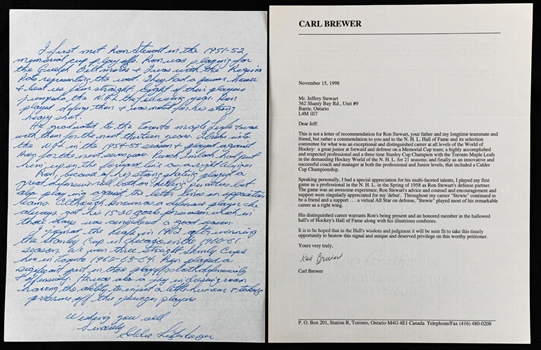 I first met Ron Stewart in the 1951-52
memorial cup play offs. Ron was playing for
the Guelph Biltmores & I was with the Regina
Pats representing the west. They had a power house
& beat us four straight. Eight of their players
jumped to the N.H.L. the following year. Ron
played defence then & was noted for his strong
heavy shot.
He graduated to the Toronto maple leafs &
was with them for the next thirteen years. I
the 1954-55 season & played against
Ron for the next
him upon the forward line
Ron because of his strong skating played a
great defensive
defensive player he
always got his 15-20 goals per season which in
that days was considered a good season.
I joined the leafs in 1961 after winning
the Stanley Cup in Chicago in the 1960-61
season
cups in Toronto
part in these playoffs both defensively
& offensively. Ron was also a key in dressing room
having the ability to inject a little humour & taking
pressure off the younger players
Wishing you well
Sincerely
Eddie Litzenberger
CARL BREWER
November 15, 1998
Mr. Jeffery Stewart
362 Shanty Bay Rd., Unit #9
Barrie, Ontario
L4M 1E7
Dear Jeff:
This is not a letter of recommendation for Ron Stewart, your father and my longtime teammate and
friend, but rather a commendation to you and to the N. H. L. Hall of Fame and its selection
committee for what was an exceptional and distinguished career at all levels of the World of
Hockey: a great junior at forward and defense on a Memorial Cup team; a highly accomplished
and respected professional and a three time Stanley Cup Champion with the Toronto Maple Leafs
in the demanding Hockey World of the N. H. L. for 21 seasons; and finally as an innovative and
successful coach and manager at both the professional and Junior levels, that included a Calder
Cup Championship.
Speaking personally, I had a special appreciation for his multi-faceted talents, I played my first
game as a professional in the N. H. L. in the Spring of 1958 as Ron Stewart's defense partner.
The game was an awesome experience; Ron Stewart's advice and counsel and encouragement and
support were singularly appreciated for my 'debut'. Throughout my career "Stewie" continued to
be a friend and a support . . . a virtual All Star on defense, 'Stewie' played most of his remarkable
career as a right wing.
His distinguished career warrants Ron's being present and an honored member in the hallowed
hall's of Hockey's Hall of Fame along with his illustrious confreres.
It is to be hoped that in the Hall's wisdom and judgment it will be seen fit to take this timely
opportunity to bestow this signal and unique and deserved privilege on this worthy petitioner.
Yours very truly,
Carl Brewer
Carl Brewer
P. O. Box 201, Station R, Toronto, Ontario M4G 4E1 Canada Telephone/Fax (416) 480-0208